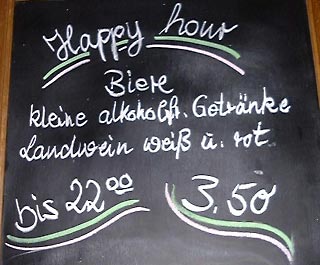 Happy hour
Biere
kleine alkoholfr. Getränke
Landwein weiß u. rot
bis 22⁰⁰ 3.50